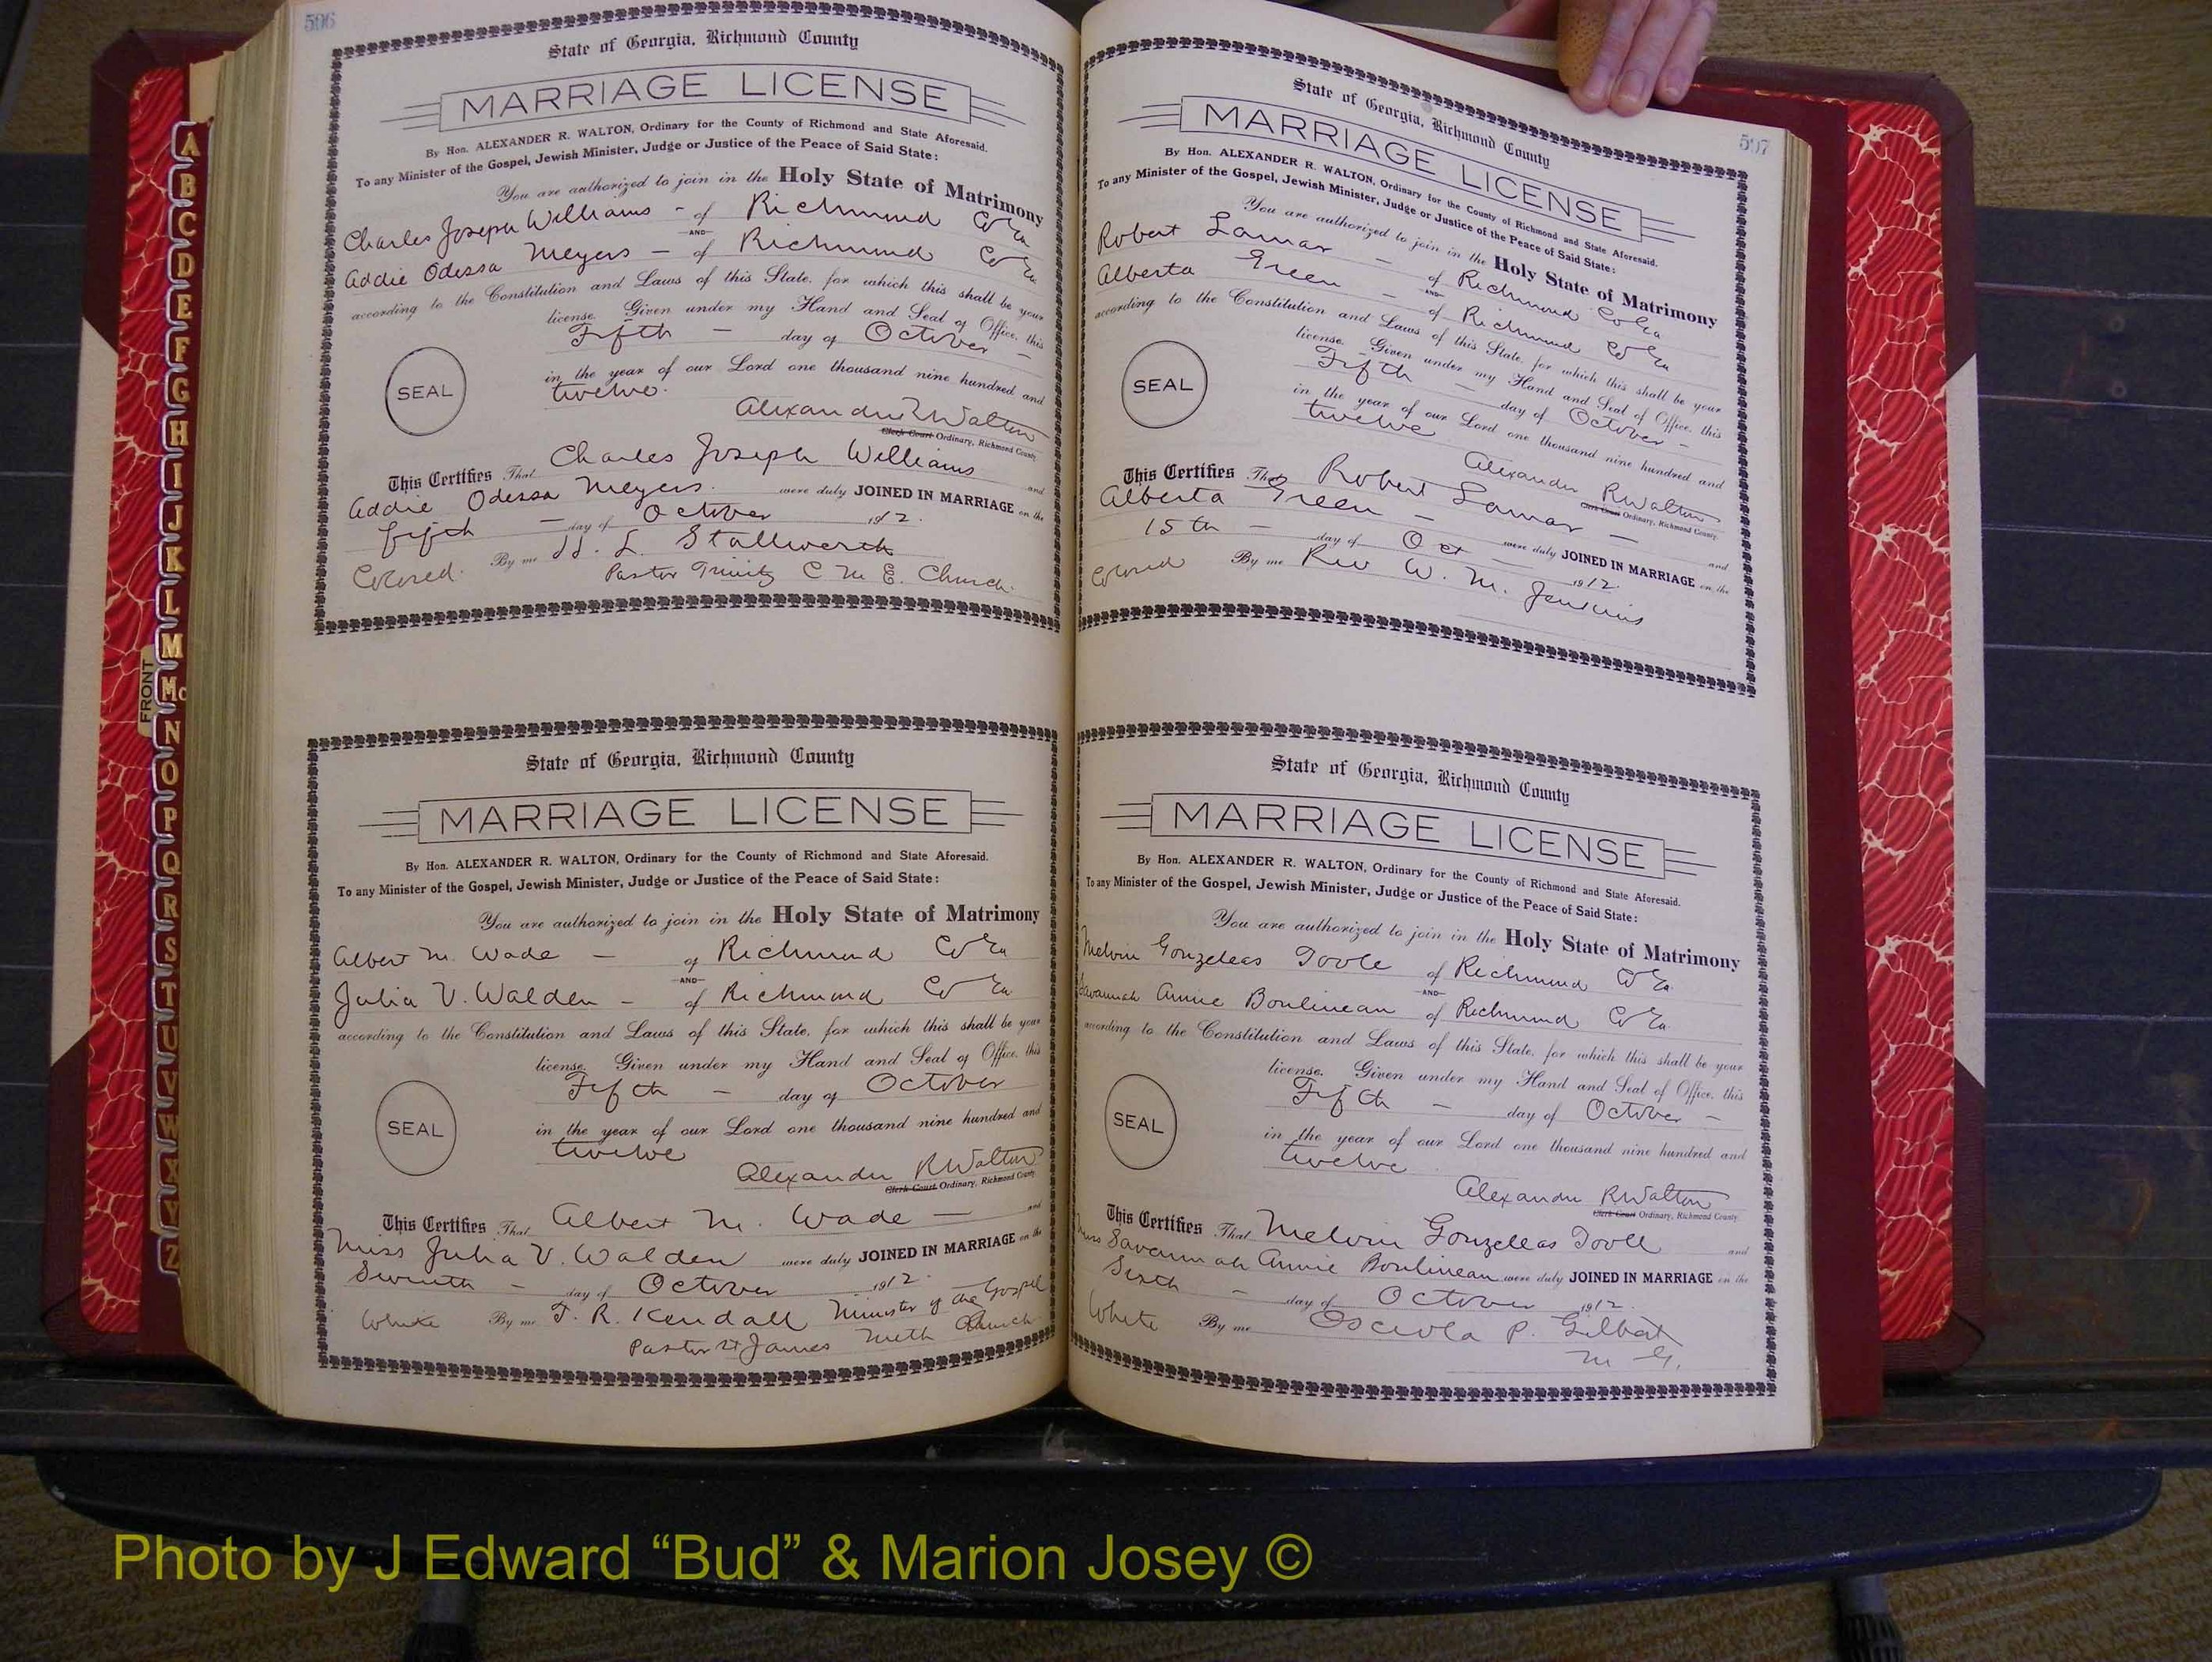 596
State of Georgia, Richmond County
MARRIAGE LICENSE
By Hon. ALEXANDER R. WALTON, Ordinary for the County of Richmond and State Aforesaid.
To any Minister of the Gospel, Jewish Minister, Judge or Justice of the Peace of Said State:
You are authorized to join in the Holy State of Matrimony
Charles Joseph Williams - of Richmond Co Ga
AND
Addie Odessa Meyers - of Richmond Co Ga
according to the Constitution and Laws of this State, for which this shall be your
license. Given under my Hand and Seal of Office, this
Fifth - day of October -
in the year of our Lord one thousand nine hundred and
twelve.
SEAL
Alexander R Walton
Clerk Court Ordinary, Richmond County
This Certifies That Charles Joseph Williams and
Addie Odessa Meyers. were duly JOINED IN MARRIAGE on the
fifth - day of October 1912.
Colored. By me L. Stallworth
Pastor Trinity C M E. Church.
State of Georgia, Richmond County
MARRIAGE LICENSE
By Hon. ALEXANDER R. WALTON, Ordinary for the County of Richmond and State Aforesaid.
To any Minister of the Gospel, Jewish Minister, Judge or Justice of the Peace of Said State:
You are authorized to join in the Holy State of Matrimony
Albert M. Wade - of Richmond Co Ga
AND
Julia V. Walden - of Richmond Co Ga
according to the Constitution and Laws of this State, for which this shall be your
license. Given under my Hand and Seal of Office, this
Fifth - day of October
in the year of our Lord one thousand nine hundred and
twelve
SEAL
Alexander R Walton
Clerk Court Ordinary, Richmond County
This Certifies That Albert M. Wade - and
Miss Julia V. Walden were duly JOINED IN MARRIAGE on the
Seventh - day of October 1912.
White By me T. R. Kendall Minister of the Gospel
Pastor St James Meth Church
597
State of Georgia, Richmond County
MARRIAGE LICENSE
By Hon. ALEXANDER R. WALTON, Ordinary for the County of Richmond and State Aforesaid.
To any Minister of the Gospel, Jewish Minister, Judge or Justice of the Peace of Said State:
You are authorized to join in the Holy State of Matrimony
Robert Lamar - of Richmond Co Ga
AND
Alberta Green - of Richmond Co Ga
according to the Constitution and Laws of this State, for which this shall be your
license. Given under my Hand and Seal of Office, this
Fifth - day of October -
in the year of our Lord one thousand nine hundred and
twelve
SEAL
Alexander R Walton
Clerk Court Ordinary, Richmond County
This Certifies That Robert Lamar - and
Alberta Green - were duly JOINED IN MARRIAGE on the
15th - day of Oct - 1912
Colored By me Rev W. M. Jenkins
State of Georgia, Richmond County
MARRIAGE LICENSE
By Hon. ALEXANDER R. WALTON, Ordinary for the County of Richmond and State Aforesaid.
To any Minister of the Gospel, Jewish Minister, Judge or Justice of the Peace of Said State:
You are authorized to join in the Holy State of Matrimony
Melvin Gonzeleas Toole of Richmond Co Ga
AND
Savannah Annie Boulineau of Richmond Co Ga
according to the Constitution and Laws of this State, for which this shall be your
license. Given under my Hand and Seal of Office, this
Fifth - day of October -
in the year of our Lord one thousand nine hundred and
twelve
SEAL
Alexander R Walton
Clerk Court Ordinary, Richmond County
This Certifies That Melvin Gonzelleas Toole and
Miss Savannah Annie Boulineau were duly JOINED IN MARRIAGE on the
Sixth - day of October 1912.
White By me Osceola P. Gilbert
M G.
A
B
C
D
E
F
G
H
I
J
K
L
M
Mc
N
O
P
Q
R
S
T
U
V
W
X
Y
Z
FRONT
Photo by J Edward “Bud” & Marion Josey ©